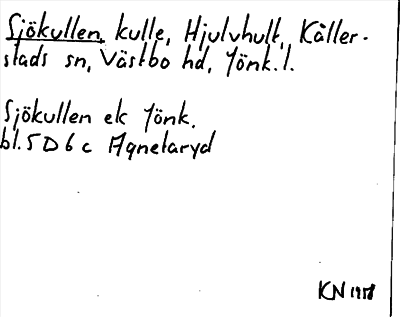 Sjökullen, kulle, Hjulvhult, Kåller-
stads sn, Västbo hd, Jönk. l.
Sjökullen ek Jönk.
bl. 5 D 6 c Agnetaryd
KN 1958